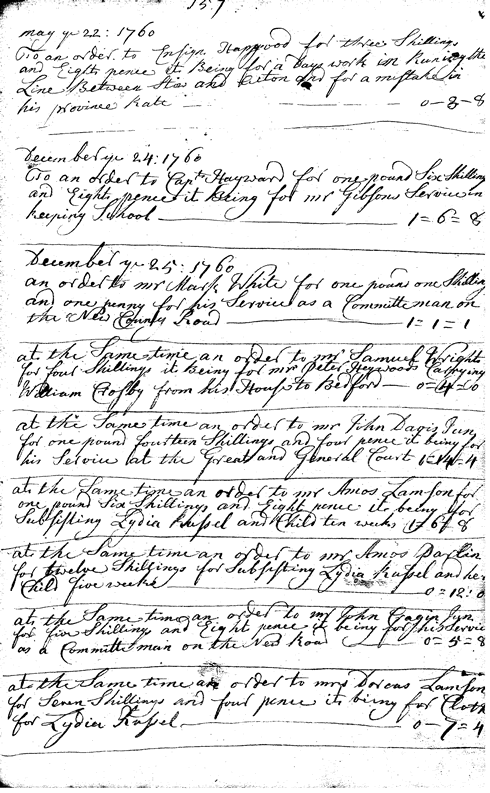 157
may ye 22: 1760
To an order to Ensign Haywood for three Shillings
and Eight pence it Being for a Days work in Runing the
Line Between Stow and Acton and for a mistake in
his province Rate 0-3-8
December ye 24: 1760
To an order to Capt Hayward for one pound Six Shillings
and Eight pence it Being for mr Gibsons Service in
keeping School 1=6=8
December ye 25: 1760
an order to mr Mark White for one pound one Shilling
and one penny for his Service as a Committe man on
the New County Road 1=1=1
at the Same time an order to mr Samuel Wright
for four Shillings it Being for mr Peter Heywoods Carrying
William Crosby from his House to Bedford 0=4=0
at the Same time an order to mr John Davis Jun
for one pound fourteen Shillings and four pence it being for
his Service at the Great and General Court 1=14=4
at the Same time an order to mr Amos Lamson for
one pound Six Shillings and Eight pence its being for
Subsisting Lydia Russel and Child ten weeks 1=6=8
at the Same time an order to mr Amos
for twelve Shillings for Subsisting Lydia Russel and her
Child five weeks 0=12:0
at the Same time an order to mr John Jun
for five Shillings and Eight pence it being for his Service
as a Committe man on the New Road 0=5=8
at the Same time an order to mrs Dorcas Lamson
for Seven Shillings and four pence its being for Cloth
for Lydia Russel 0-7=4